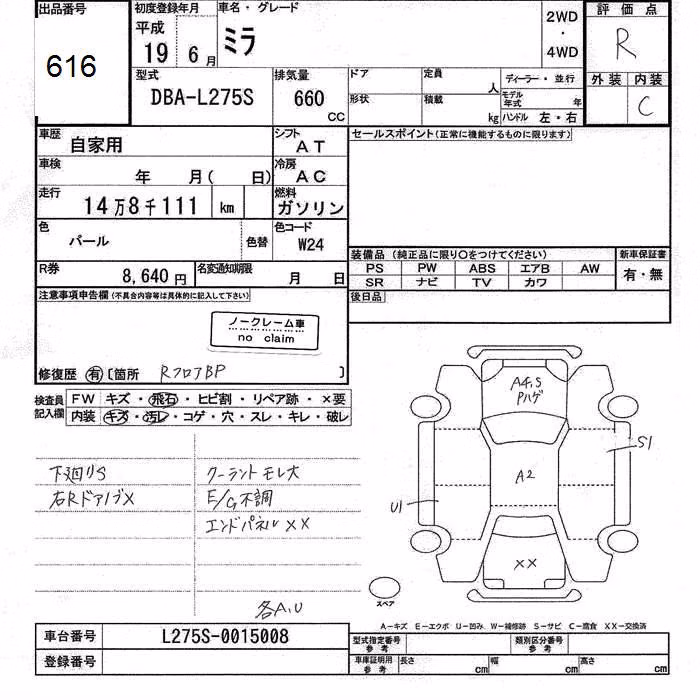 出品番号
616
初度登録年月
平成
19 6月
車名・グレード
ミラ
2WD
・
4WD
評価点
R
外装 内装
C
型式
DBA-L275S
排気量
660
CC
ドア
定員
人
形状
積載
kg
ディーラー・並行
モデル年式 年
ハンドル 左・右
車歴
自家用
シフト
AT
車検
年 月( 日)
冷房
AC
走行
14万8千111 km
燃料
ガソリン
色
パール
色替
色コード
W24
R券
8,640円
名変通知期限
月 日
セールスポイント(正常に機能するものに限ります)
装備品 (純正品に限り○をつけてください)
PS PW ABS エアB AW
SR ナビ TV カワ
新車保証書
有・無
後日品
注意事項申告欄(不具合内容等は具体的に記入して下さい)
ノークレーム車
no claim
修復歴 有 〔箇所 RフロアBP 〕
検査員記入欄
FW キズ・飛石・ヒビ割・リペア跡・×要
内装 キズ・汚レ・コゲ・穴・スレ・キレ・破レ
下廻りS
右RドアノブX
クーラントモレ大
E/G不調
エンドパネルXX
各A,U
A4,S
Pハゲ
A2
S1
U1
XX
スペア
A-キズ E-エクボ U-凹み W-補修跡 S-サビ C-腐食 XX-交換済
車台番号
L275S-0015008
登録番号
型式指定番号
参考
類別区分番号
参考
車庫証明用
参考
長さ cm
幅 cm
高さ cm